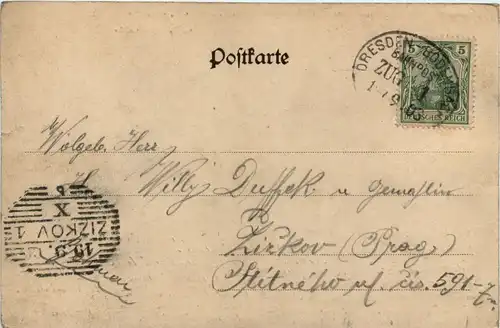 Postkarte
5 5
DRESDEN
BAHNPOST
ZUG
DEUTSCHES REICH
Wolgeb. Herr
H. Willy Duffek u Gemahlin
Žižkov (Prag)
Štitného ul. čis. 591-7.
ZIZKOV 1
19.9.
X